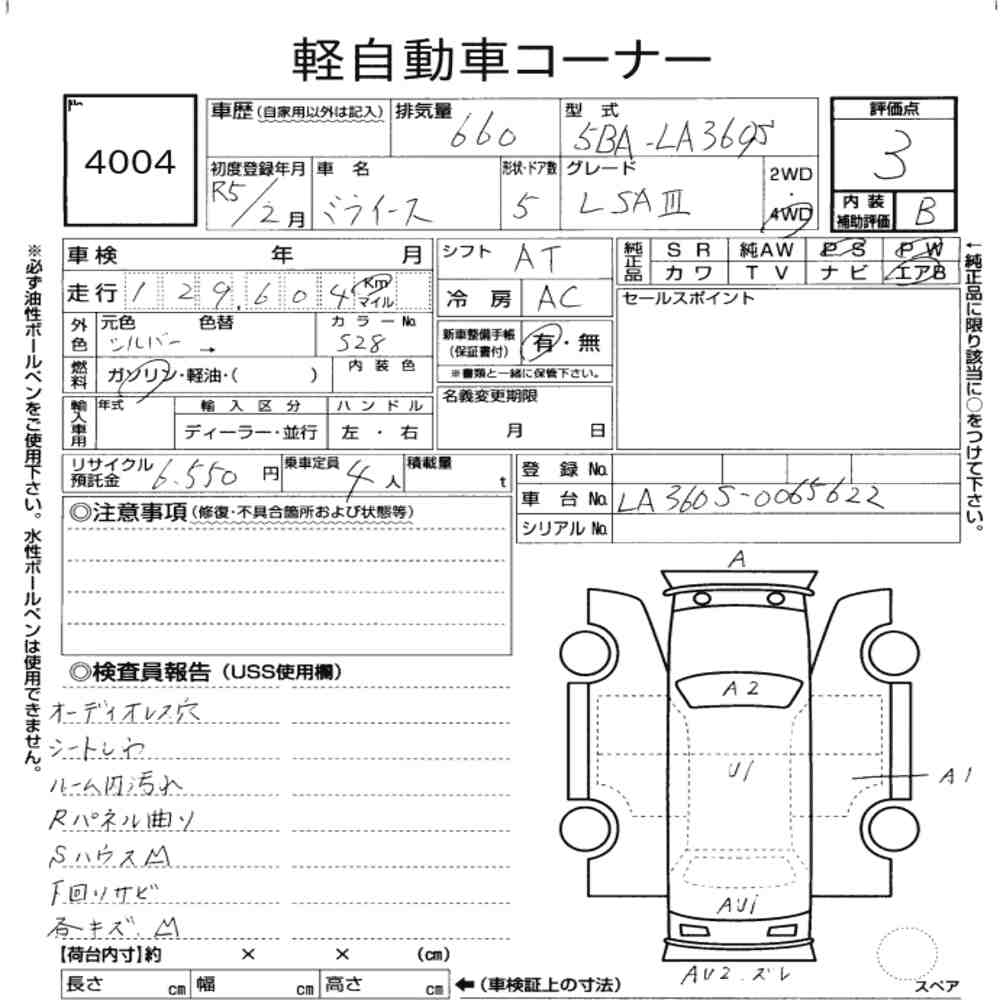 軽自動車コーナー
4004
車歴(自家用以外は記入)
排気量 660
型式 5BA-LA360S
評価点 3
内装補助評価 B
初度登録年月 R5/2月
車名 ミライース
形状・ドア数 5
グレード LSAⅢ
2WD・4WD
車検 年 月
シフト AT
純正品 SR 純AW PS PW
カワ TV ナビ エアB
走行 129,604 Km マイル
冷房 AC
セールスポイント
外色 元色 シルバー → 色替
カラーNo. S28
新車整備手帳(保証書付) 有・無
※書類と一緒に保管下さい。
燃料 ガソリン・軽油・( )
内装色
名義変更期限 月 日
輸入車用 年式 輸入区分 ハンドル
ディーラー・並行 左・右
リサイクル預託金 6,550円
乗車定員 4人
積載量 t
登録No.
車台No. LA360S-0065622
シリアルNo.
◎注意事項(修復・不具合箇所および状態等)
◎検査員報告(USS使用欄)
オーディオレス穴
シートレワ
ルーム内汚れ
Rパネル曲り
Sハウス凹
下回りサビ
各キズ.凹
A
A2
U1
A1
AU1
AU2.ズレ
【荷台内寸】約 × × (cm)
長さ cm 幅 cm 高さ cm ←(車検証上の寸法)
スペア
※必ず油性ボールペンをご使用下さい。水性ボールペンは使用できません。
←純正品に限り該当に○をつけて下さい。